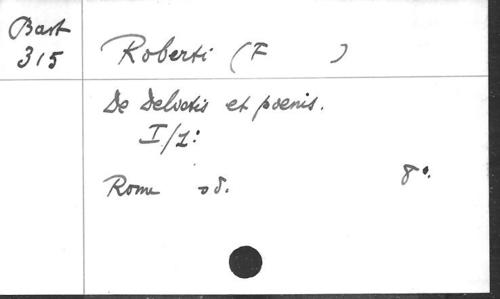 Bart
315
Roberti (F )
De Delictis et poenis.
I/1:
Rome sd. 8°.